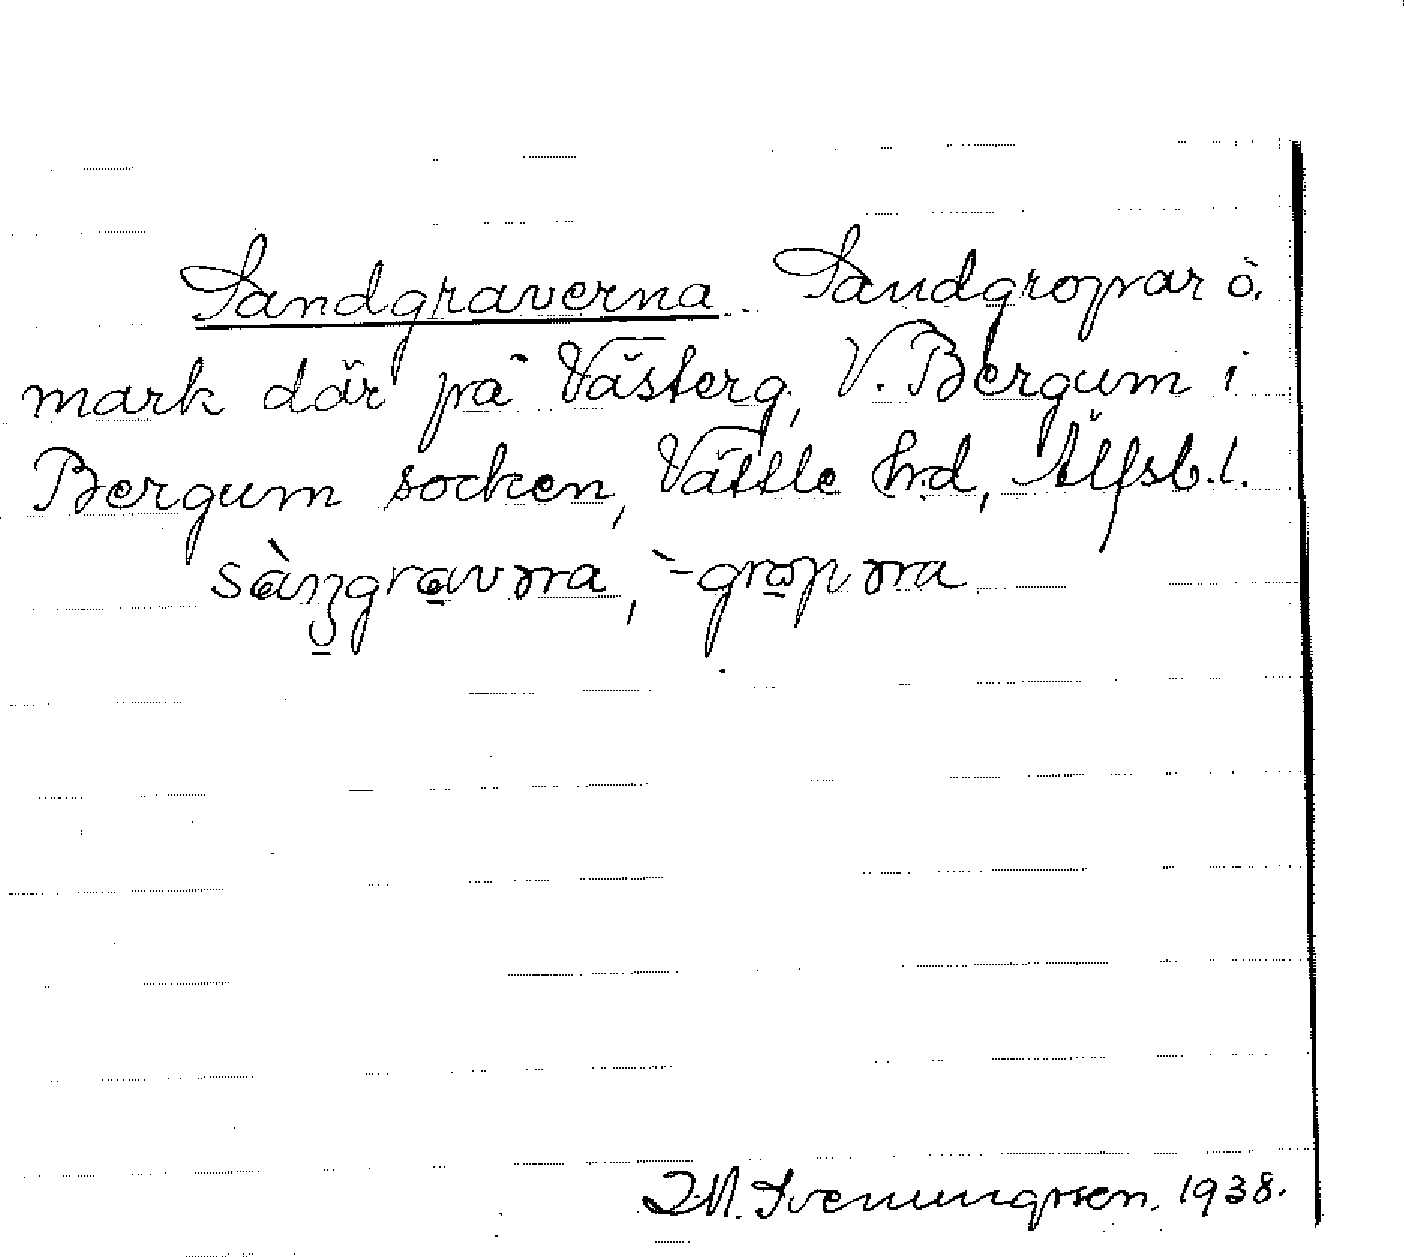 Sandgraverna Sandgropar o.
mark där på Västerg, V. Bergum i
Bergum socken, Vättle hd, Älfsb. l.
sàngravrra, -gropvrra
Sveningsson. 1938.